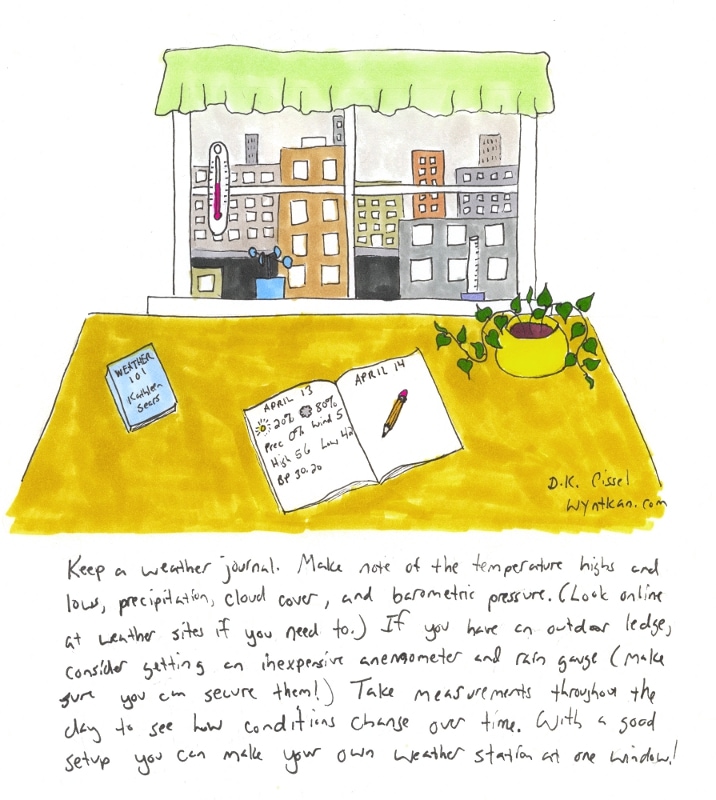 WEATHER
101
Kathleen
Sears
APRIL 13
20% 80%
Prec 0% Wind 5
High 56 Low 42
BP 30.20
APRIL 14
D.K. Cissel
Wyntkan.com
Keep a weather journal. Make note of the temperature highs and
lows, precipitation, cloud cover, and barometric pressure. (Look online
at weather sites if you need to.) If you have an outdoor ledge,
consider getting an inexpensive anemometer and rain gauge (make
sure you can secure them!) Take measurements throughout the
day to see how conditions change over time. With a good
setup you can make your own weather station at one window!